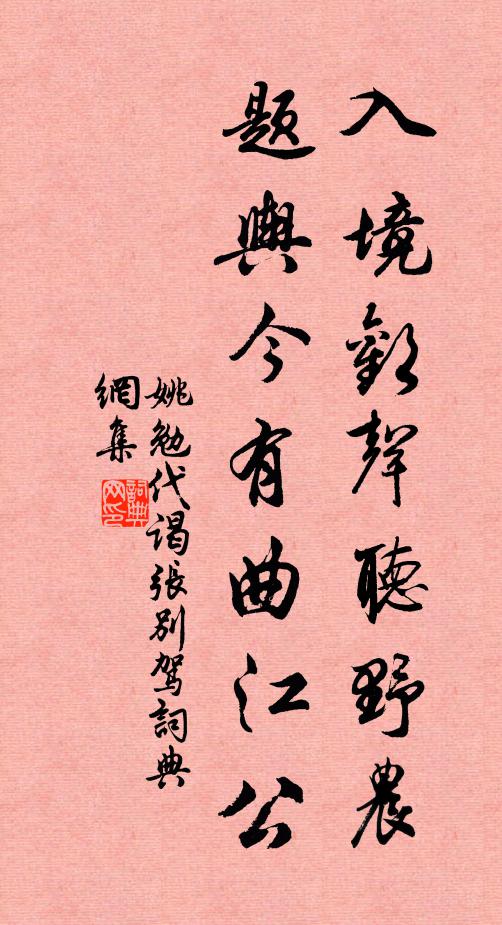 入境歡聲聽野農
題輿今有曲江公
姚勉代谒張別駕詞典
網集
詞典網印